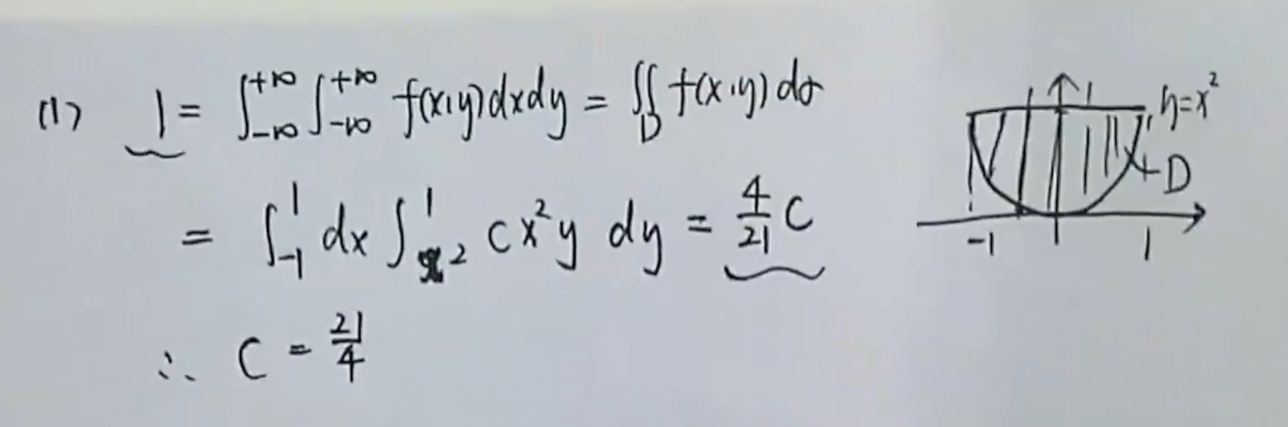 (1) 1 = ∫_{-∞}^{+∞} ∫_{-∞}^{+∞} f(x,y)dxdy = ∬_D f(x,y)dσ
= ∫_{-1}^{1} dx ∫_{x²}^{1} cx²y dy = 4/21 C
∴ C = 21/4
1
y=x²
D
-1 1